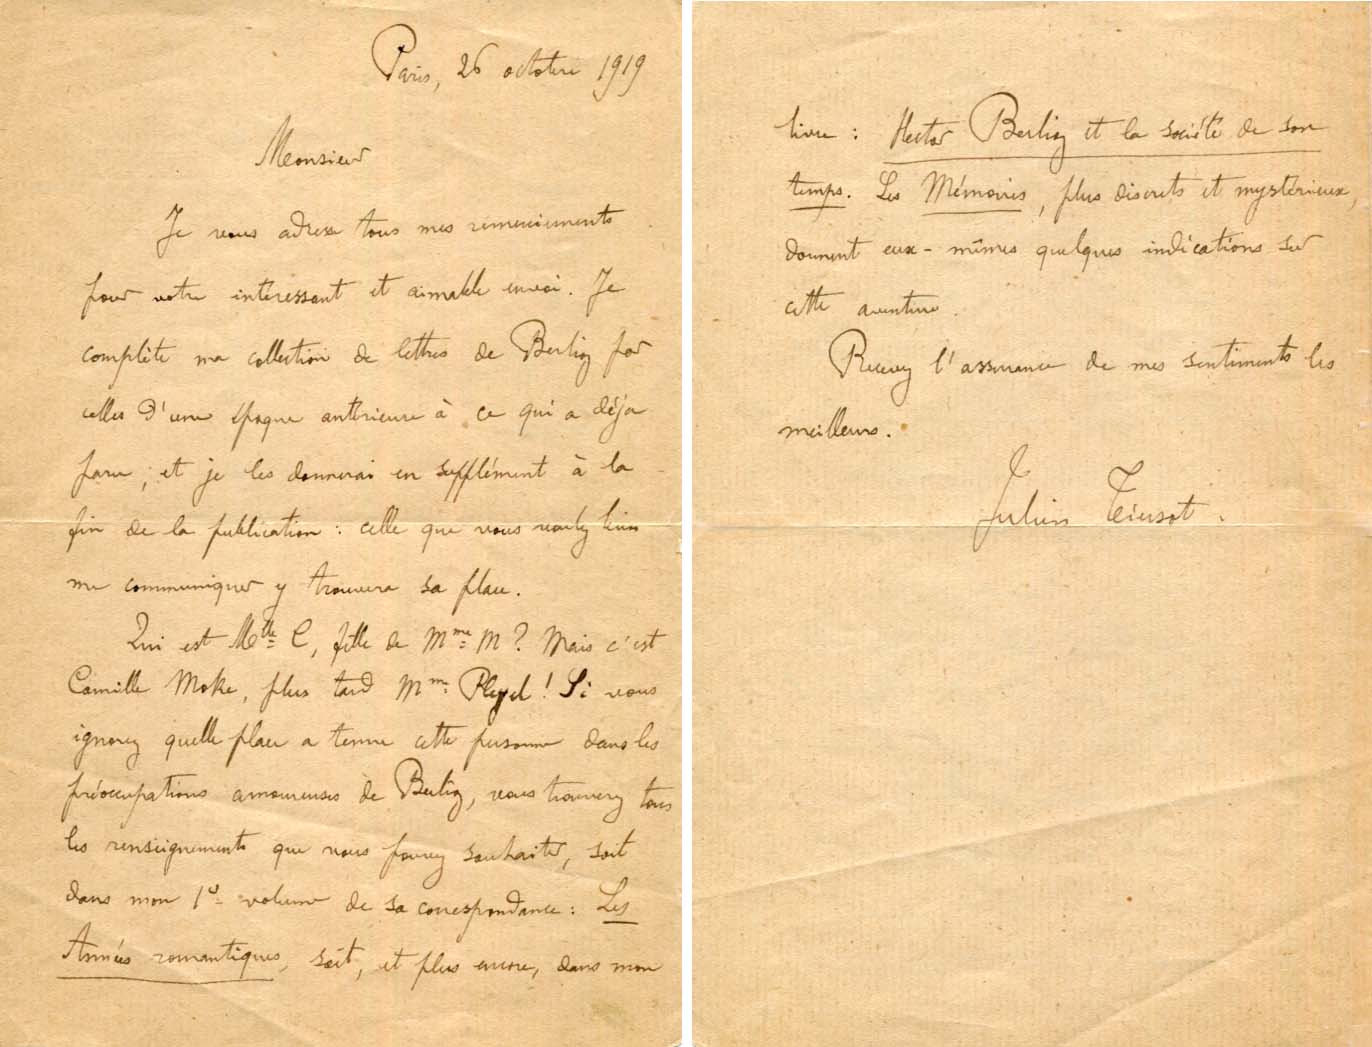 Paris, 26 octobre 1919
Monsieur
Je vous adresse tous mes remerciements
pour votre intéressant et aimable envoi. Je
complète ma collection de lettres de Berlioz par
celles d'une époque antérieure à ce qui a déjà
paru ; et je les donnerai en supplément à la
fin de la publication : celle que vous voulez bien
me communiquer y trouvera sa place.
Qui est Mlle C, fille de Mme M ? Mais c'est
Camille Moke, plus tard Mme Pleyel ! Si vous
ignorez quelle place a tenue cette personne dans les
préoccupations amoureuses de Berlioz, vous trouverez tous
les renseignements que vous pouvez souhaiter, soit
dans mon 1er volume de sa correspondance : Les
Années romantiques, soit, et plus encore, dans mon
livre : Hector Berlioz et la société de son
temps. Les Mémoires, plus discrets et mystérieux,
donnent eux-mêmes quelques indications sur
cette aventure.
Recevez l'assurance de mes sentiments les
meilleurs.
Julien Tiersot.